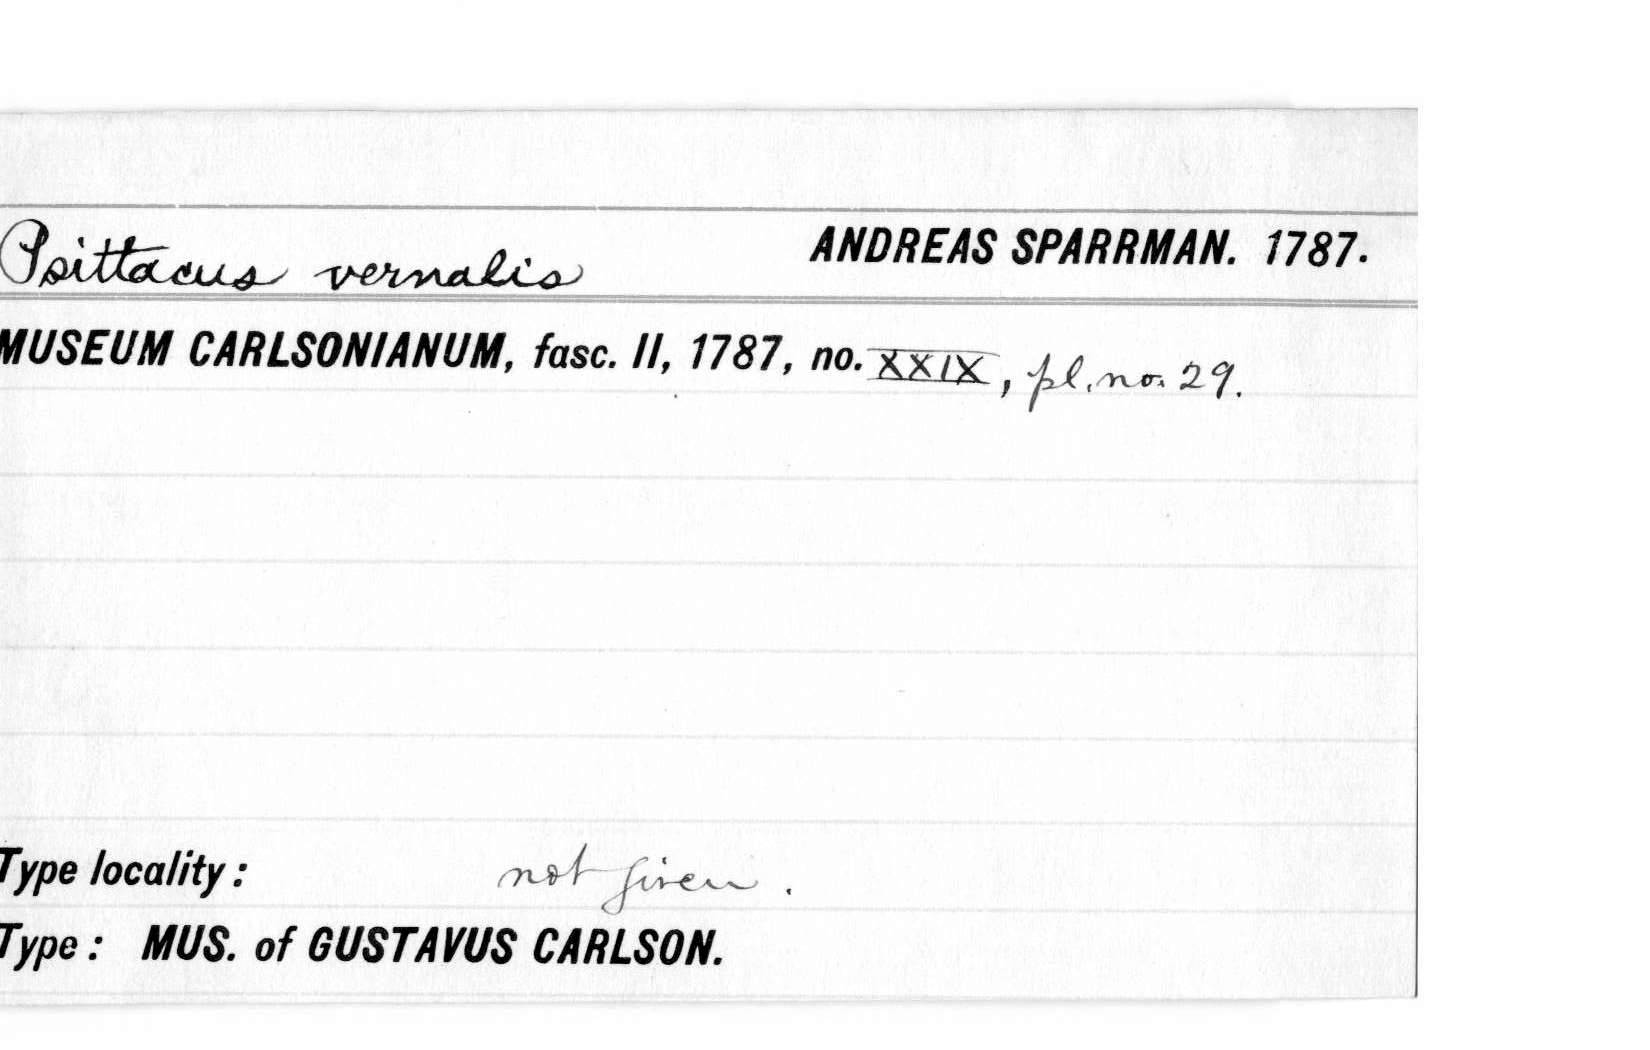 Psittacus vernalis ANDREAS SPARRMAN. 1787.
MUSEUM CARLSONIANUM, fasc. II, 1787, no. XXIX, pl. no. 29.
Type locality: not given.
Type: MUS. of GUSTAVUS CARLSON.